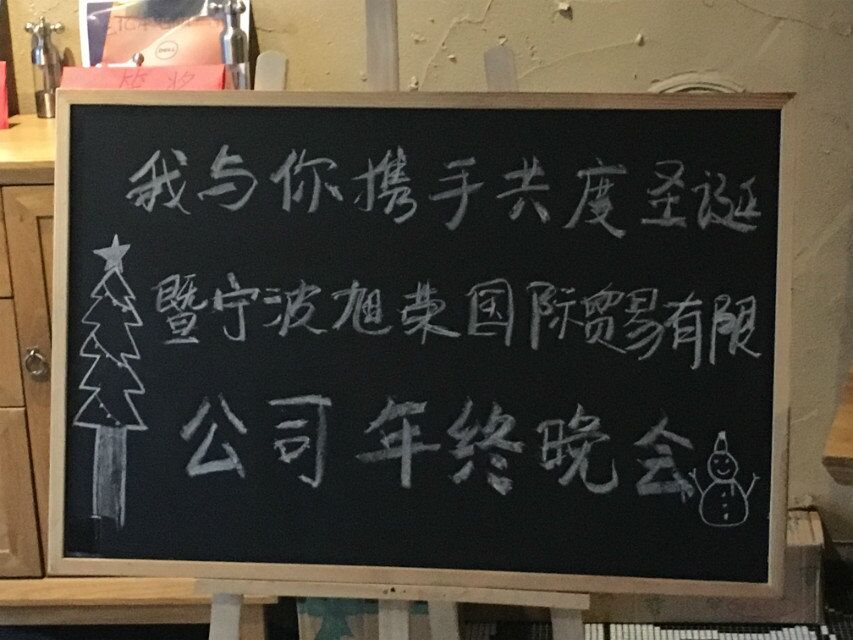 DELL
我与你携手共度圣诞
暨宁波旭荣国际贸易有限
公司年终晚会